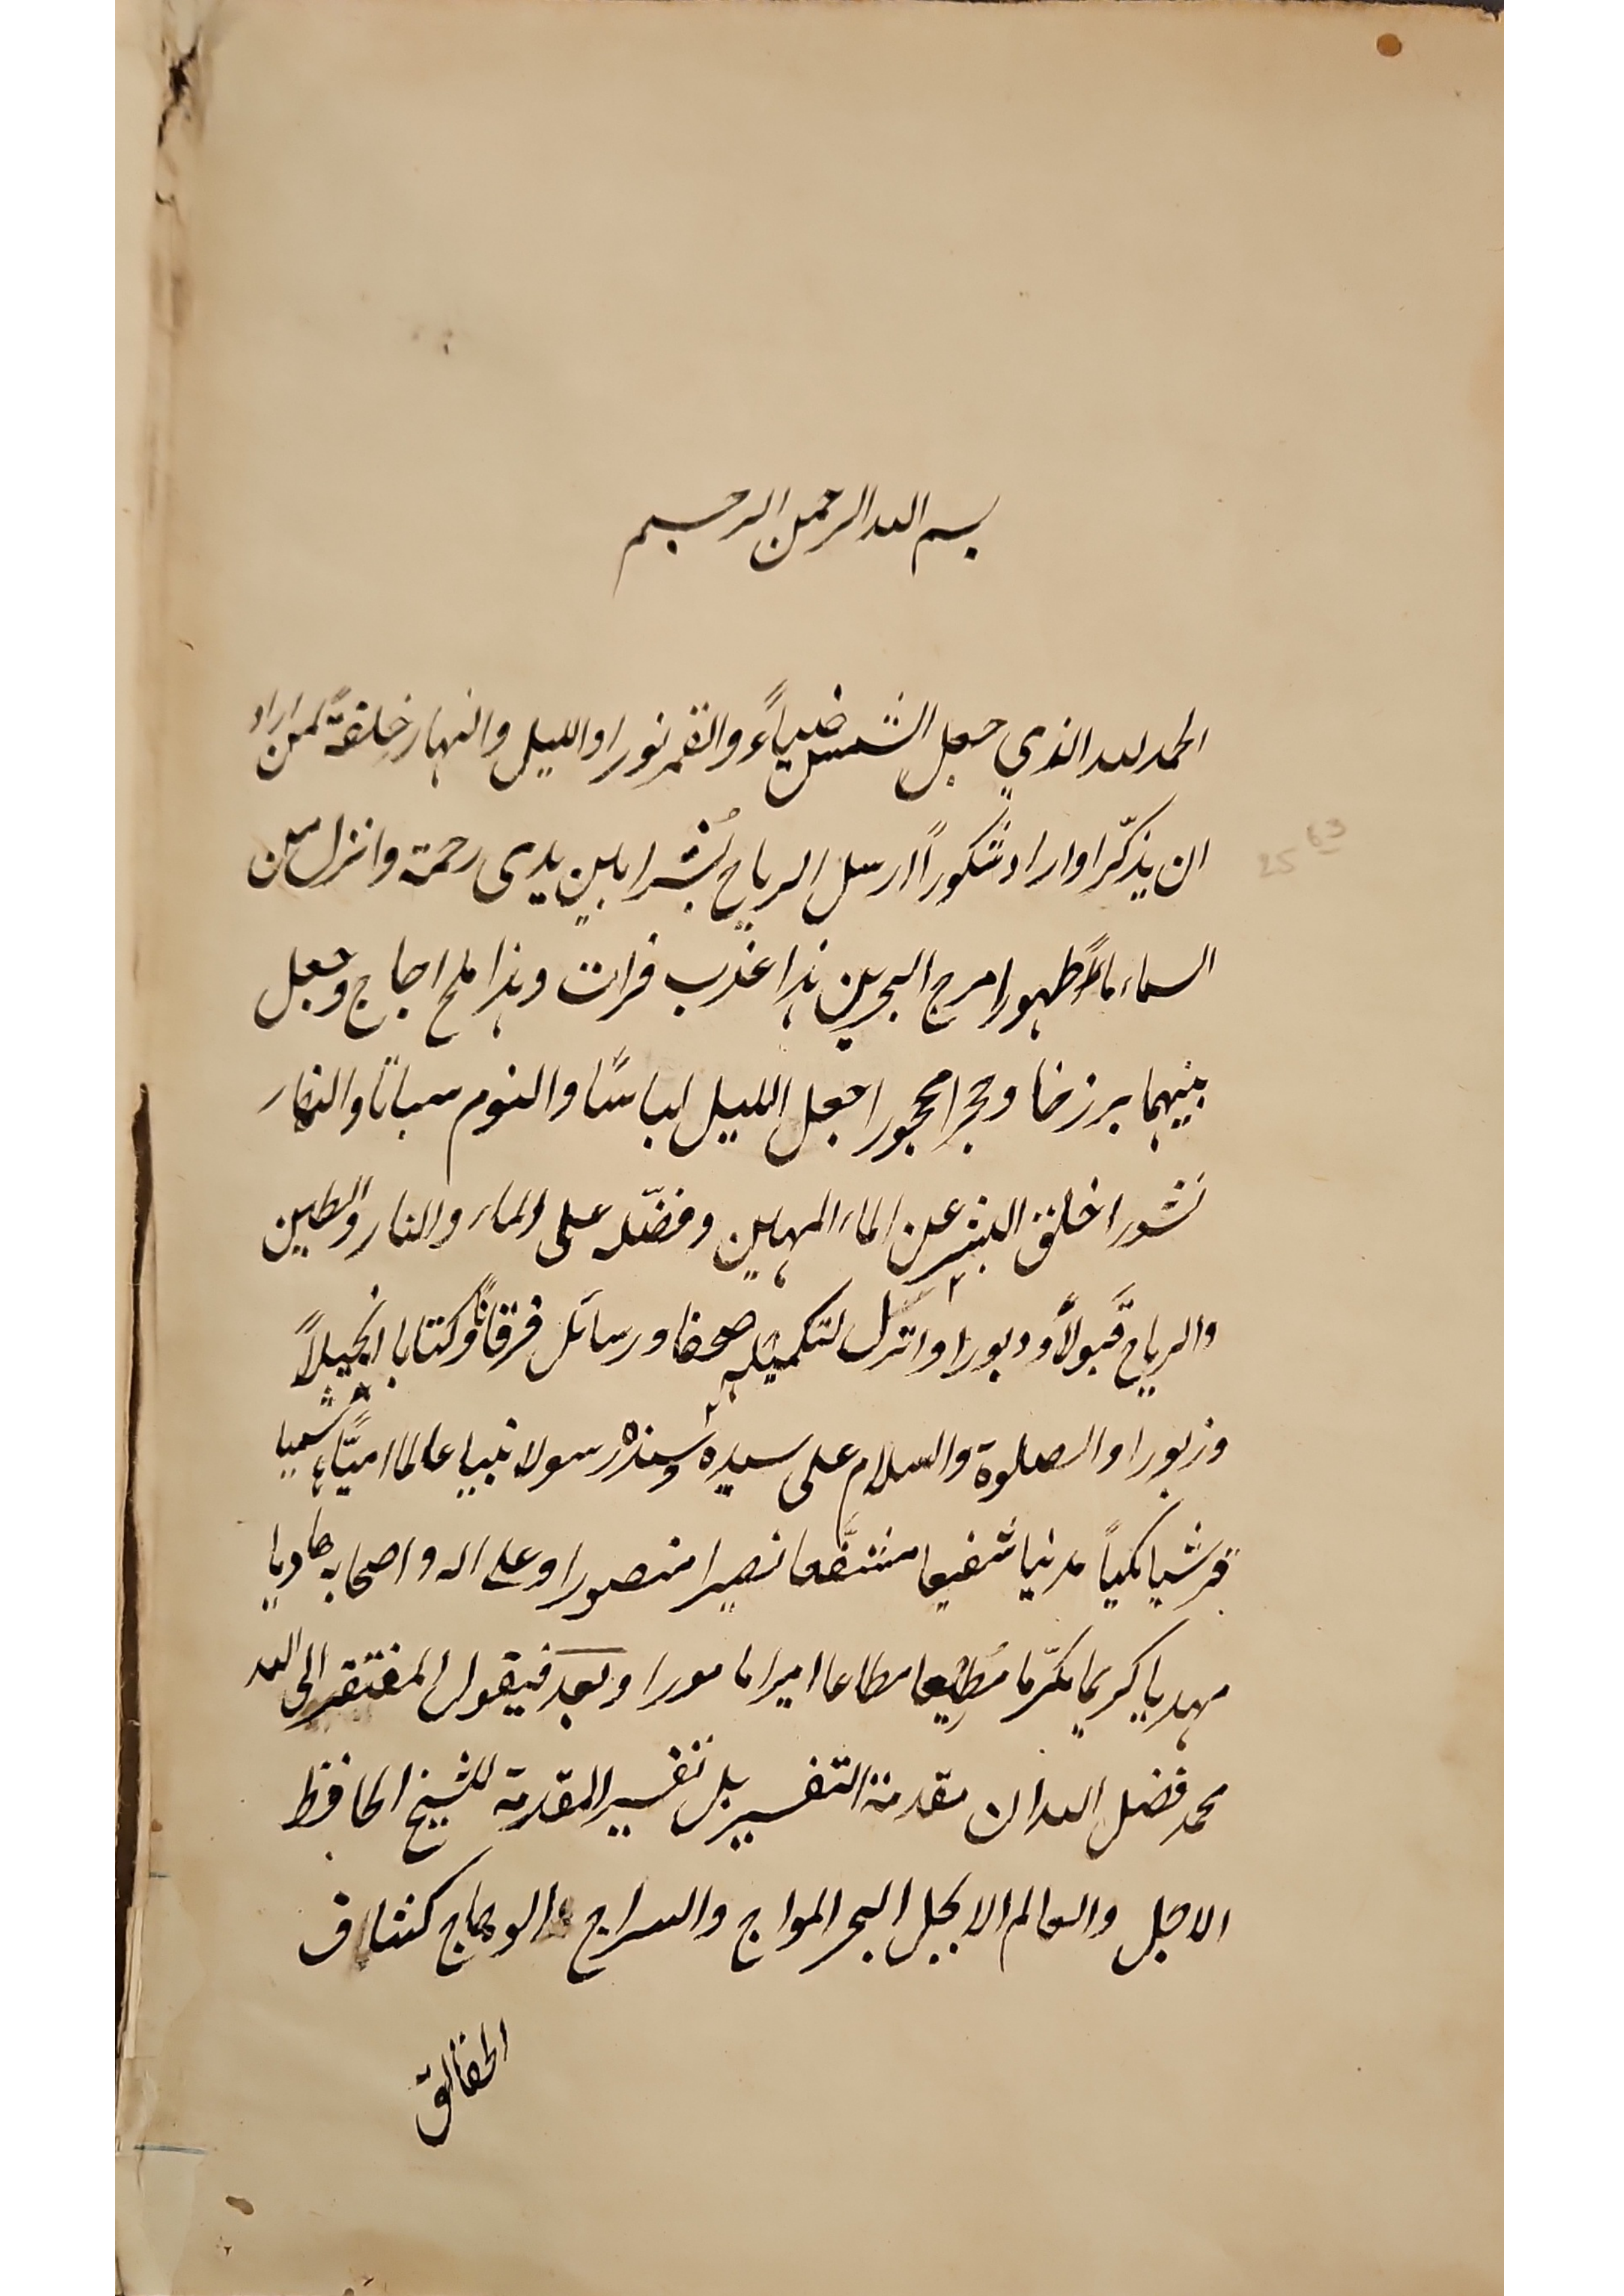 بسم الله الرحمن الرحيم
الحمد لله الذي جعل الشمس ضياءً والقمر نورا والليل والنهار خلفةً لمن اراد
ان يذكّر او اراد شكوراً ارسل الرياح بُشرا بين يدى رحمة وانزل من
السماء ماءً طهورا مرج البحرين هذا عذب فرات وهذا ملح اجاج وجعل
بينهما برزخا وحجرا محجورا جعل الليل لباسًا والنوم سباتا والنهار
نشورا خلق البشر عن الماء المهين وفضّله على الماء والنار والطين
والرياح قَبولاً ودبورا وانزل لتكميله صحفا ورسائل فرقاناً وكتابا انجيلاً
وزبورا والصلوة والسلام على سيده وسنده رسولا نبيا عالما اميّا هاشميا
قرشيا مكياً مدنيا شفيعا مشفَّعا نصيرا منصورا وعلى اله واصحابه هاديا
مهديا كريما مكرّما مُطيعا مطاعا اميرا مامورا وبعد فيقول المفتقر الى الله
محمد فضل الله ان مقدمة التفسير بل تفسير المقدمة للشيخ الحافظ
الاجل والعالم الابجل البحر المواج والسراج الوهاج كشاف
الحقائق
25 63